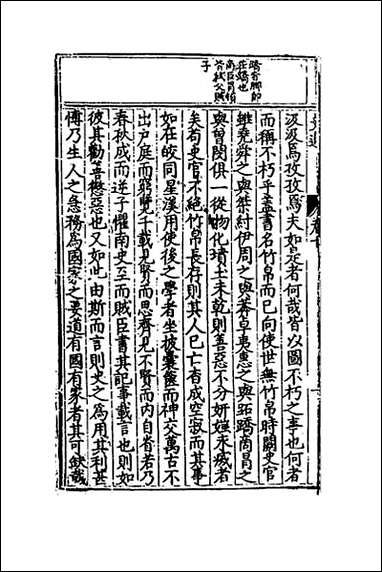 蹻音脚即
莊蹻也
商臣冒頓
皆弑父賊
子
汲汲焉孜孜焉夫如是者何哉皆以圖不朽之事也何者
而稱不朽乎蓋書名竹帛而已向使世無竹帛時闕史官
雖堯舜之與桀紂伊周之與莽卓夷惠之與跖蹻商冒之
與曾閔俱一從物化墳土未乾則善惡不分妍媸永滅者
矣苟史官不絶竹帛長存則其人已亡杳成空寂而其事
如在皎同星漢用使後之學者坐披囊篋而神交萬古不
出戸庭而窮覽千載見賢而思齊見不賢而内自省若乃
春秋成而逆子懼南史至而賊臣書其記事載言也則如
彼其勸善懲惡也又如此由斯而言則史之爲用其利甚
博乃生人之急務爲國家之要道有國有家者其可缺哉